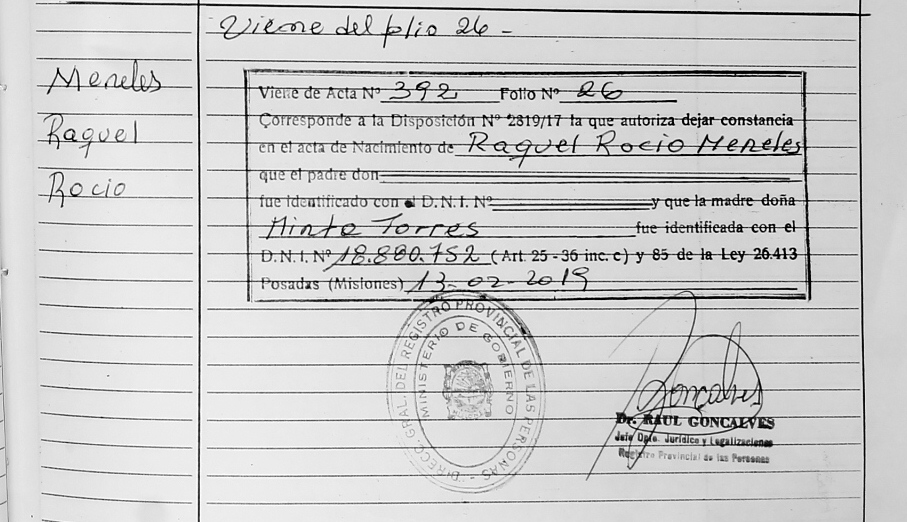 Viene del folio 26 -
Meneles
Raquel
Rocio
Viene de Acta Nº 392 Folio Nº 26
Corresponde a la Disposición Nº 2819/17 la que autoriza dejar constancia
en el acta de Nacimiento de Raquel Rocio Meneles
que el padre don
fue identificado con el D.N.I. Nº y que la madre doña
Minta Torres fue identificada con el
D.N.I. Nº 18.880.752 (Art. 25 - 36 inc. c) y 85 de la Ley 26.413
Posadas (Misiones) 13-02-2019
DIRECC. GRAL. DEL REGISTRO PROVINCIAL DE LAS PERSONAS -
MINISTERIO DE GOBIERNO
Goncalves
Dr. RAUL GONCALVES
Jefe Dpto. Jurídico y Legalizaciones
Registro Provincial de las Personas